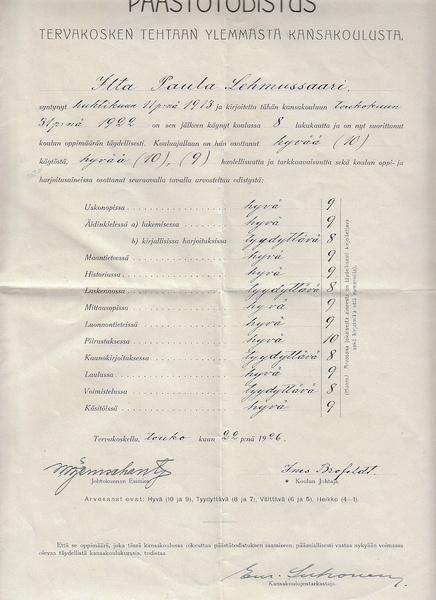 PÄÄSTÖTODISTUS
TERVAKOSKEN TEHTAAN YLEMMÄSTÄ KANSAKOULUSTA.
Paula Lehmussaari,
syntynyt huhtikuun 11 p:nä 1913 ja kirjoitettu tähän kansakouluun toukokuun
31 p:nä 1922 on sen jälkeen käynyt koulussa 8 lukukautta ja on nyt suorittanut
koulun oppimäärän täydellisesti. Kouluajallaan on hän osottanut hyvää (10)
käytöstä, hyvää (10), (9) huolellisuutta ja tarkkaavaisuutta sekä koulun oppi- ja
harjoitusaineissa osottanut seuraavalla tavalla arvosteltua edistystä:
Uskonopissa hyvä 9
Äidinkielessä a) lukemisessa hyvä 9
b) kirjallisissa harjoituksissa tyydyttävä 8
Maantieteessä hyvä 9
Historiassa hyvä 9
Laskennossa tyydyttävä 8
Mittausopissa hyvä 9
Luonnontieteissä hyvä 9
Piirustuksessa hyvä 10
Kaunokirjoituksessa tyydyttävä 8
Laulussa hyvä 9
Voimistelussa tyydyttävä 8
Käsitöissä hyvä 9
(Muist.) Arvosana jokaisesta aineesta on täydellisesti kirjoitettava
sekä kirjaimilla että numeroilla.
Tervakoskella, touko kuun 22 p:nä 1926.
Johtokunnan Esimies.
Ines Brofeldt.
Koulun Johtaja.
Arvosanat ovat: Hyvä (10 ja 9), Tyydyttävä (8 ja 7), Välttävä (6 ja 5), Heikko (4–1).
Että se oppimäärä, joka tässä kansakoulussa oikeuttaa päästötodistuksen saamiseen, pääasiallisesti vastaa nykyään voimassa
olevaa täydellistä kansakoulukurssia, todistaa
Kansakoulujentarkastaja.